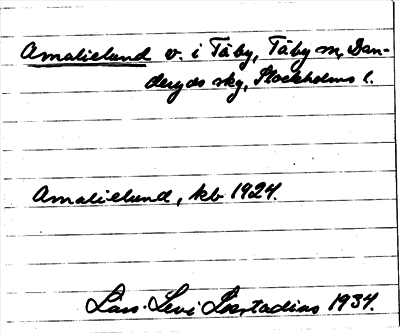 Amalielund v. i Täby, Täby sn, Dan-
deryds skg, Stockholms l.
Amalielund, kb 1924.
Lars-Levi Læstadius 1934.